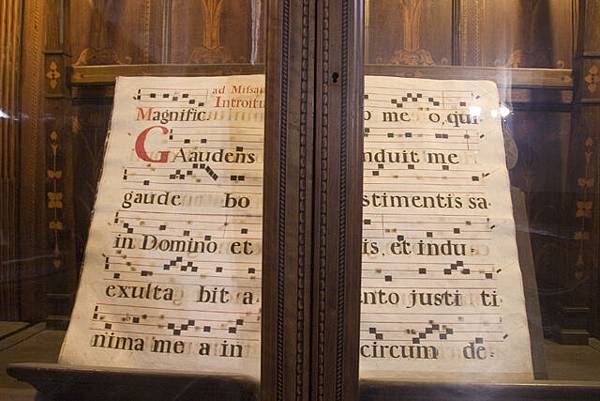 ad Missa
Introitu
Magnific.
GAaudens
gaude bo
in Domino et
exulta bit a
nima me a in
o me o, qui
nduit me
stimentis sa
is, et indu
nto justi ti
circum de